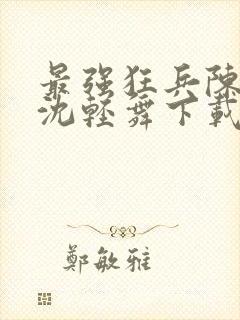 最强狂兵陳
沈輕舞下載
鄭敏雅